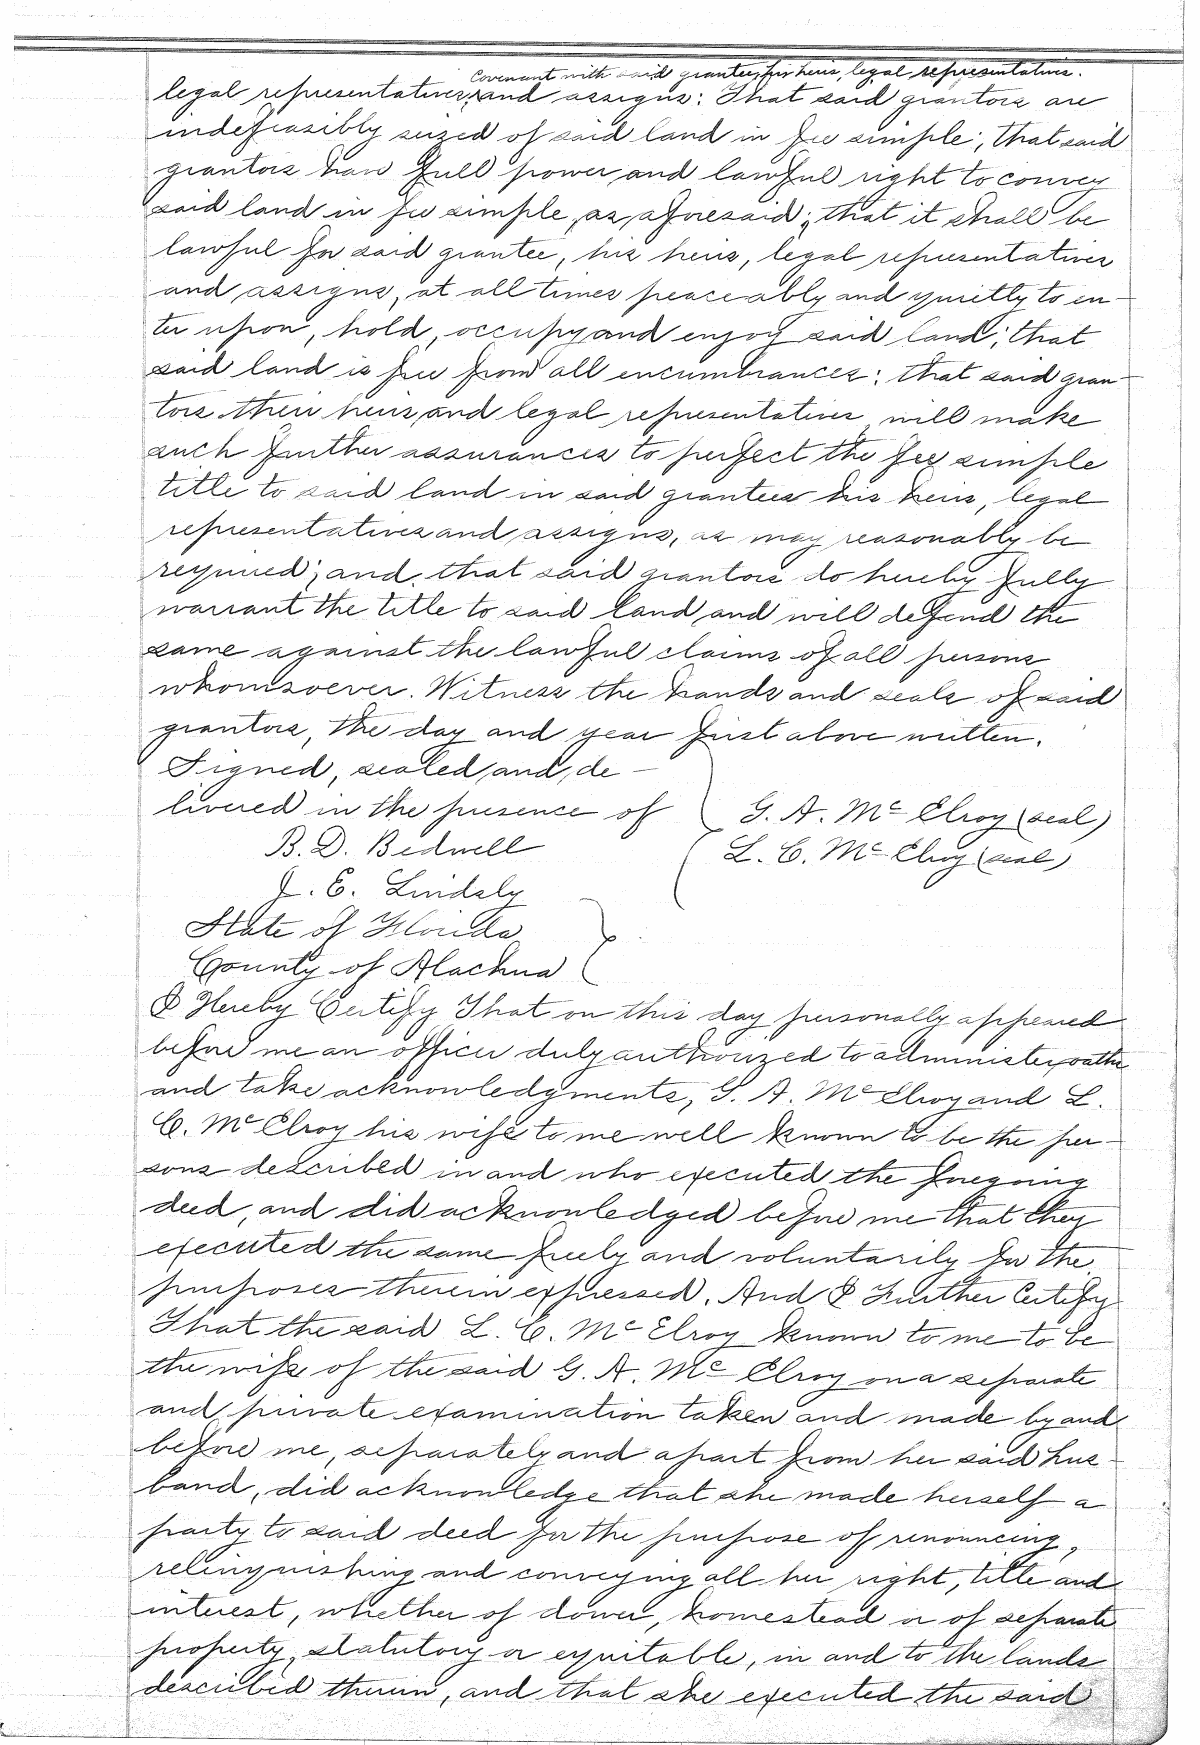 covenant with said grantee, for heirs, legal representatives.
legal representatives, and assigns: That said grantors are
indefeasibly seized of said land in fee simple; that said
grantors have full power and lawful right to convey
said land in fee simple, as aforesaid; that it shall be
lawful for said grantee, his heirs, legal representatives
and assigns, at all times peaceably and quietly to en-
ter upon, hold, occupy and enjoy said land; that
said land is free from all encumbrances; that said gran-
tors their heirs, and legal representatives, will make
such further assurances to perfect the fee simple
title to said land in said grantees his heirs, legal
representatives and assigns, as may reasonably be
required; and, that said grantors do hereby fully
warrant the title to said land, and will defend the
same against the lawful claims of all persons
whomsoever. Witness the hands and seals of said
grantors, the day and year first above written.
Signed, sealed, and, de-
livered in the presence of
G. A. McElroy (seal)
B. D. Bedwell
L. C. McElroy (seal)
J. E. Lindsly
State of Florida
County of Alachua
I Hereby Certify That on this day personally appeared
before me an officer duly authorized to administer oaths
and take acknowledgments, G. A. McElroy and L.
C. McElroy his wife to me well known to be the per-
sons described in and who executed the foregoing
deed, and did acknowledged before me that they
executed the same freely and voluntarily for the
purposes therein expressed. And I Further Certify
That the said L. C. McElroy known to me to be
the wife of the said G. A. McElroy on a separate
and private examination taken and made by and
before me, separately and apart from her said hus-
band, did acknowledge that she made herself a
party to said deed for the purpose of renouncing,
relinquishing and conveying all her right, title and
interest, whether of dower, homestead or of separate
property, statutory or equitable, in and to the lands
described therein, and that she executed the said